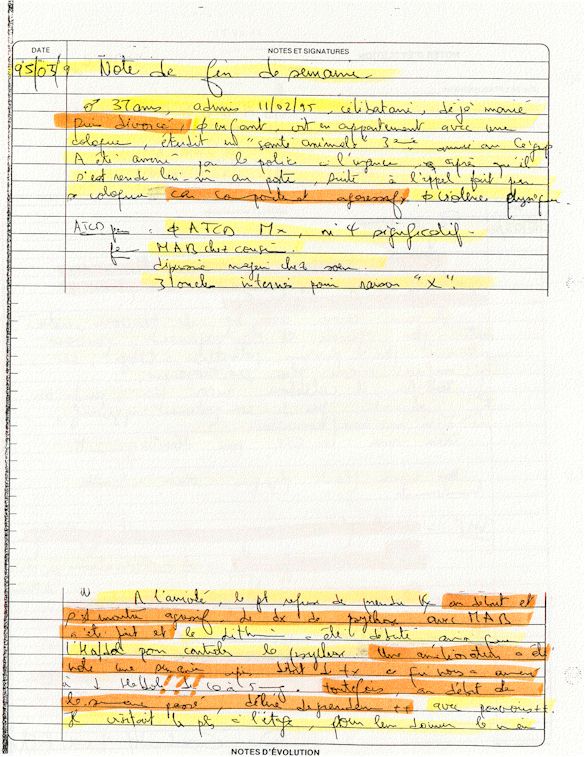 DATE
NOTES ET SIGNATURES
95/03/9 Note de fin de semaine
♂ 37 ans, admis 11/02/95, célibataire, déjà marié
puis divorcé, φ enfant, vit en appartement avec une
cologue, étudit en "santé animale" 3ième année au Cégep
A été amené par le police à l'urgence, après qu'il
s'est rendu lui-m au poste, suite à l'appel fait par
cologue car comportement agressif, φ violence physique.
ATCD per : φ ATCD Mx, ni significatif.
MAB chez cousin.
dépression majeure chez soeur.
3 oncles internés pour raison "X".
A l'arrivée, le pt refuse de prendre Rx au début et
s'est montré agressif, le dx de psychose avec MAB
a été fait et le lithium a été débuté avec
l'Haldol pour contrôler la psychose. Une amélioration a été
noté une semaine après début tx ce qui nous a amené
à ↓ Haldol de 10 à 5 mg. Toutefois, au début de
la semaine passé, délire de grandeur ++ avec
Il visitait le pts à l'étage, pour leur donner le
NOTES D'ÉVOLUTION